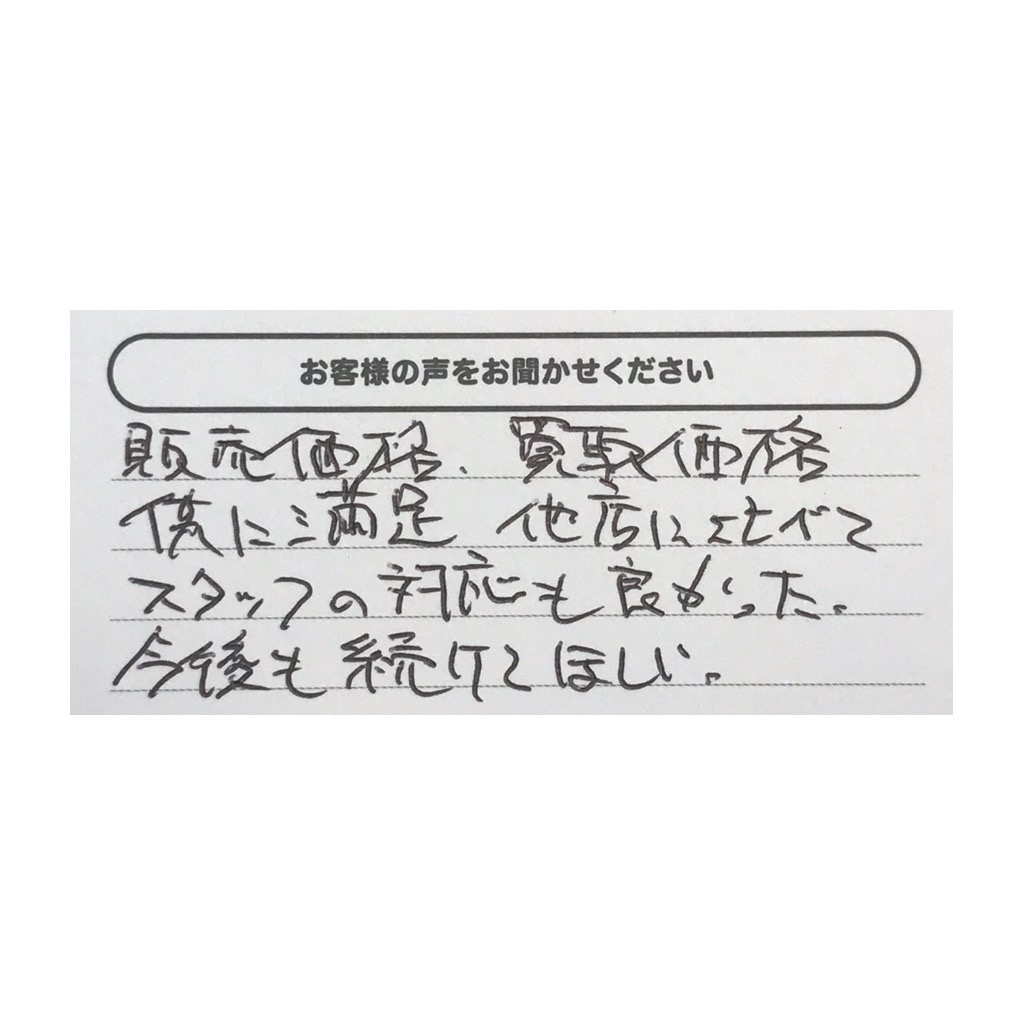 お客様の声をお聞かせください
販売価格、買取価格
供に満足 他店にくらべて
スタッフの対応も良かった。
今後も続けてほしい。